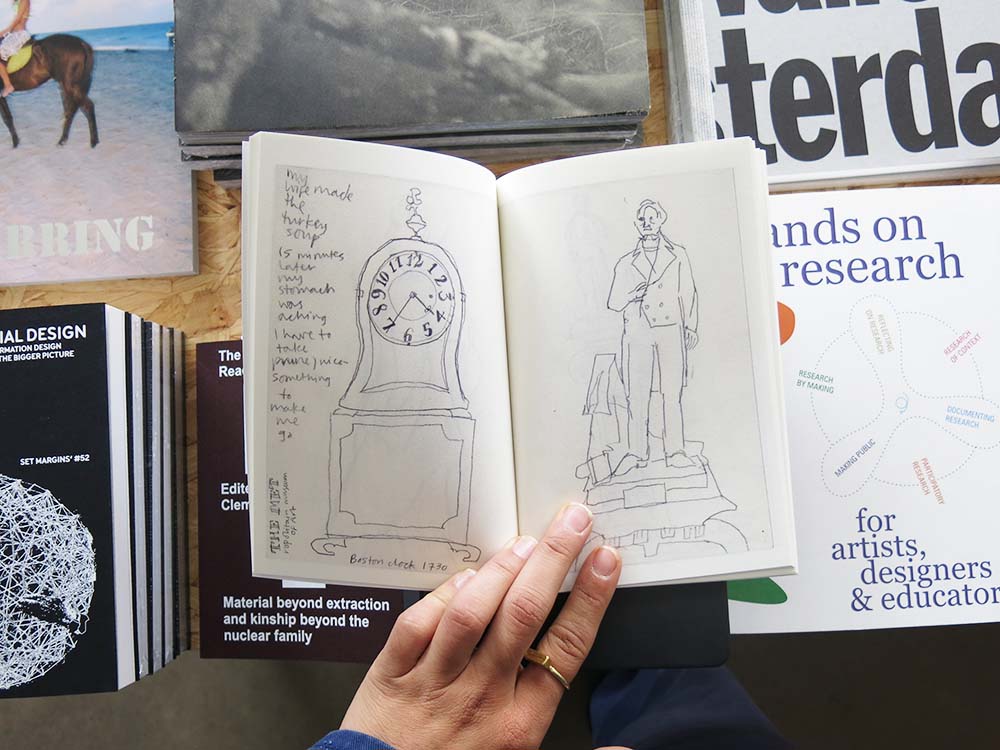 my
wife made
the
turkey
soup
15 minutes
later
my
stomach
was
aching
I have to
take
prune juice-
something
to
make
me
go
THE MET
museum
metropolitan
of
art
11 12 1
10 2
9 3
8 4
7 6 5
Boston clock 1730
BRING
sterda
ands on
research
REFLECTING
ON RESEARCH
RESEARCH
OF CONTEXT
RESEARCH
BY MAKING
DOCUMENTING
RESEARCH
MAKING PUBLIC
PARTICIPATORY
RESEARCH
for
artists,
designers
& educator
IAL DESIGN
ORMATION DESIGN
THE BIGGER PICTURE
SET MARGINS' #52
The
Rea
Edite
Clem
Material beyond extraction
and kinship beyond the
nuclear family